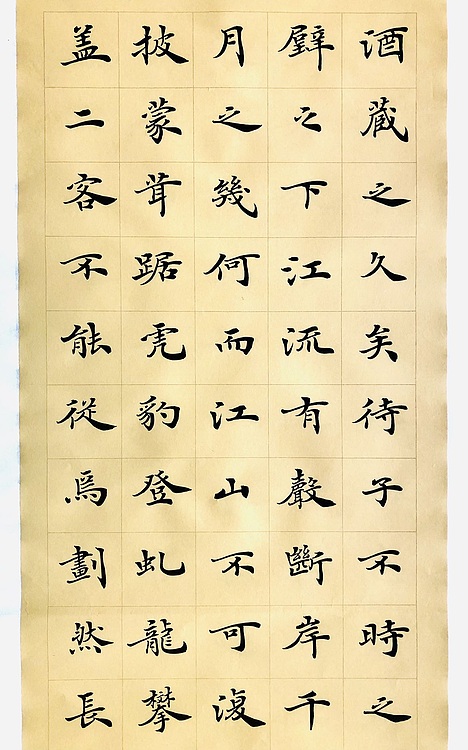 酒藏之久矣待子不時之
壁之下江流有聲斷岸千
月之幾何而江山不可復
披蒙茸踞虎豹登虬龍攀
盖二客不能從焉劃然長